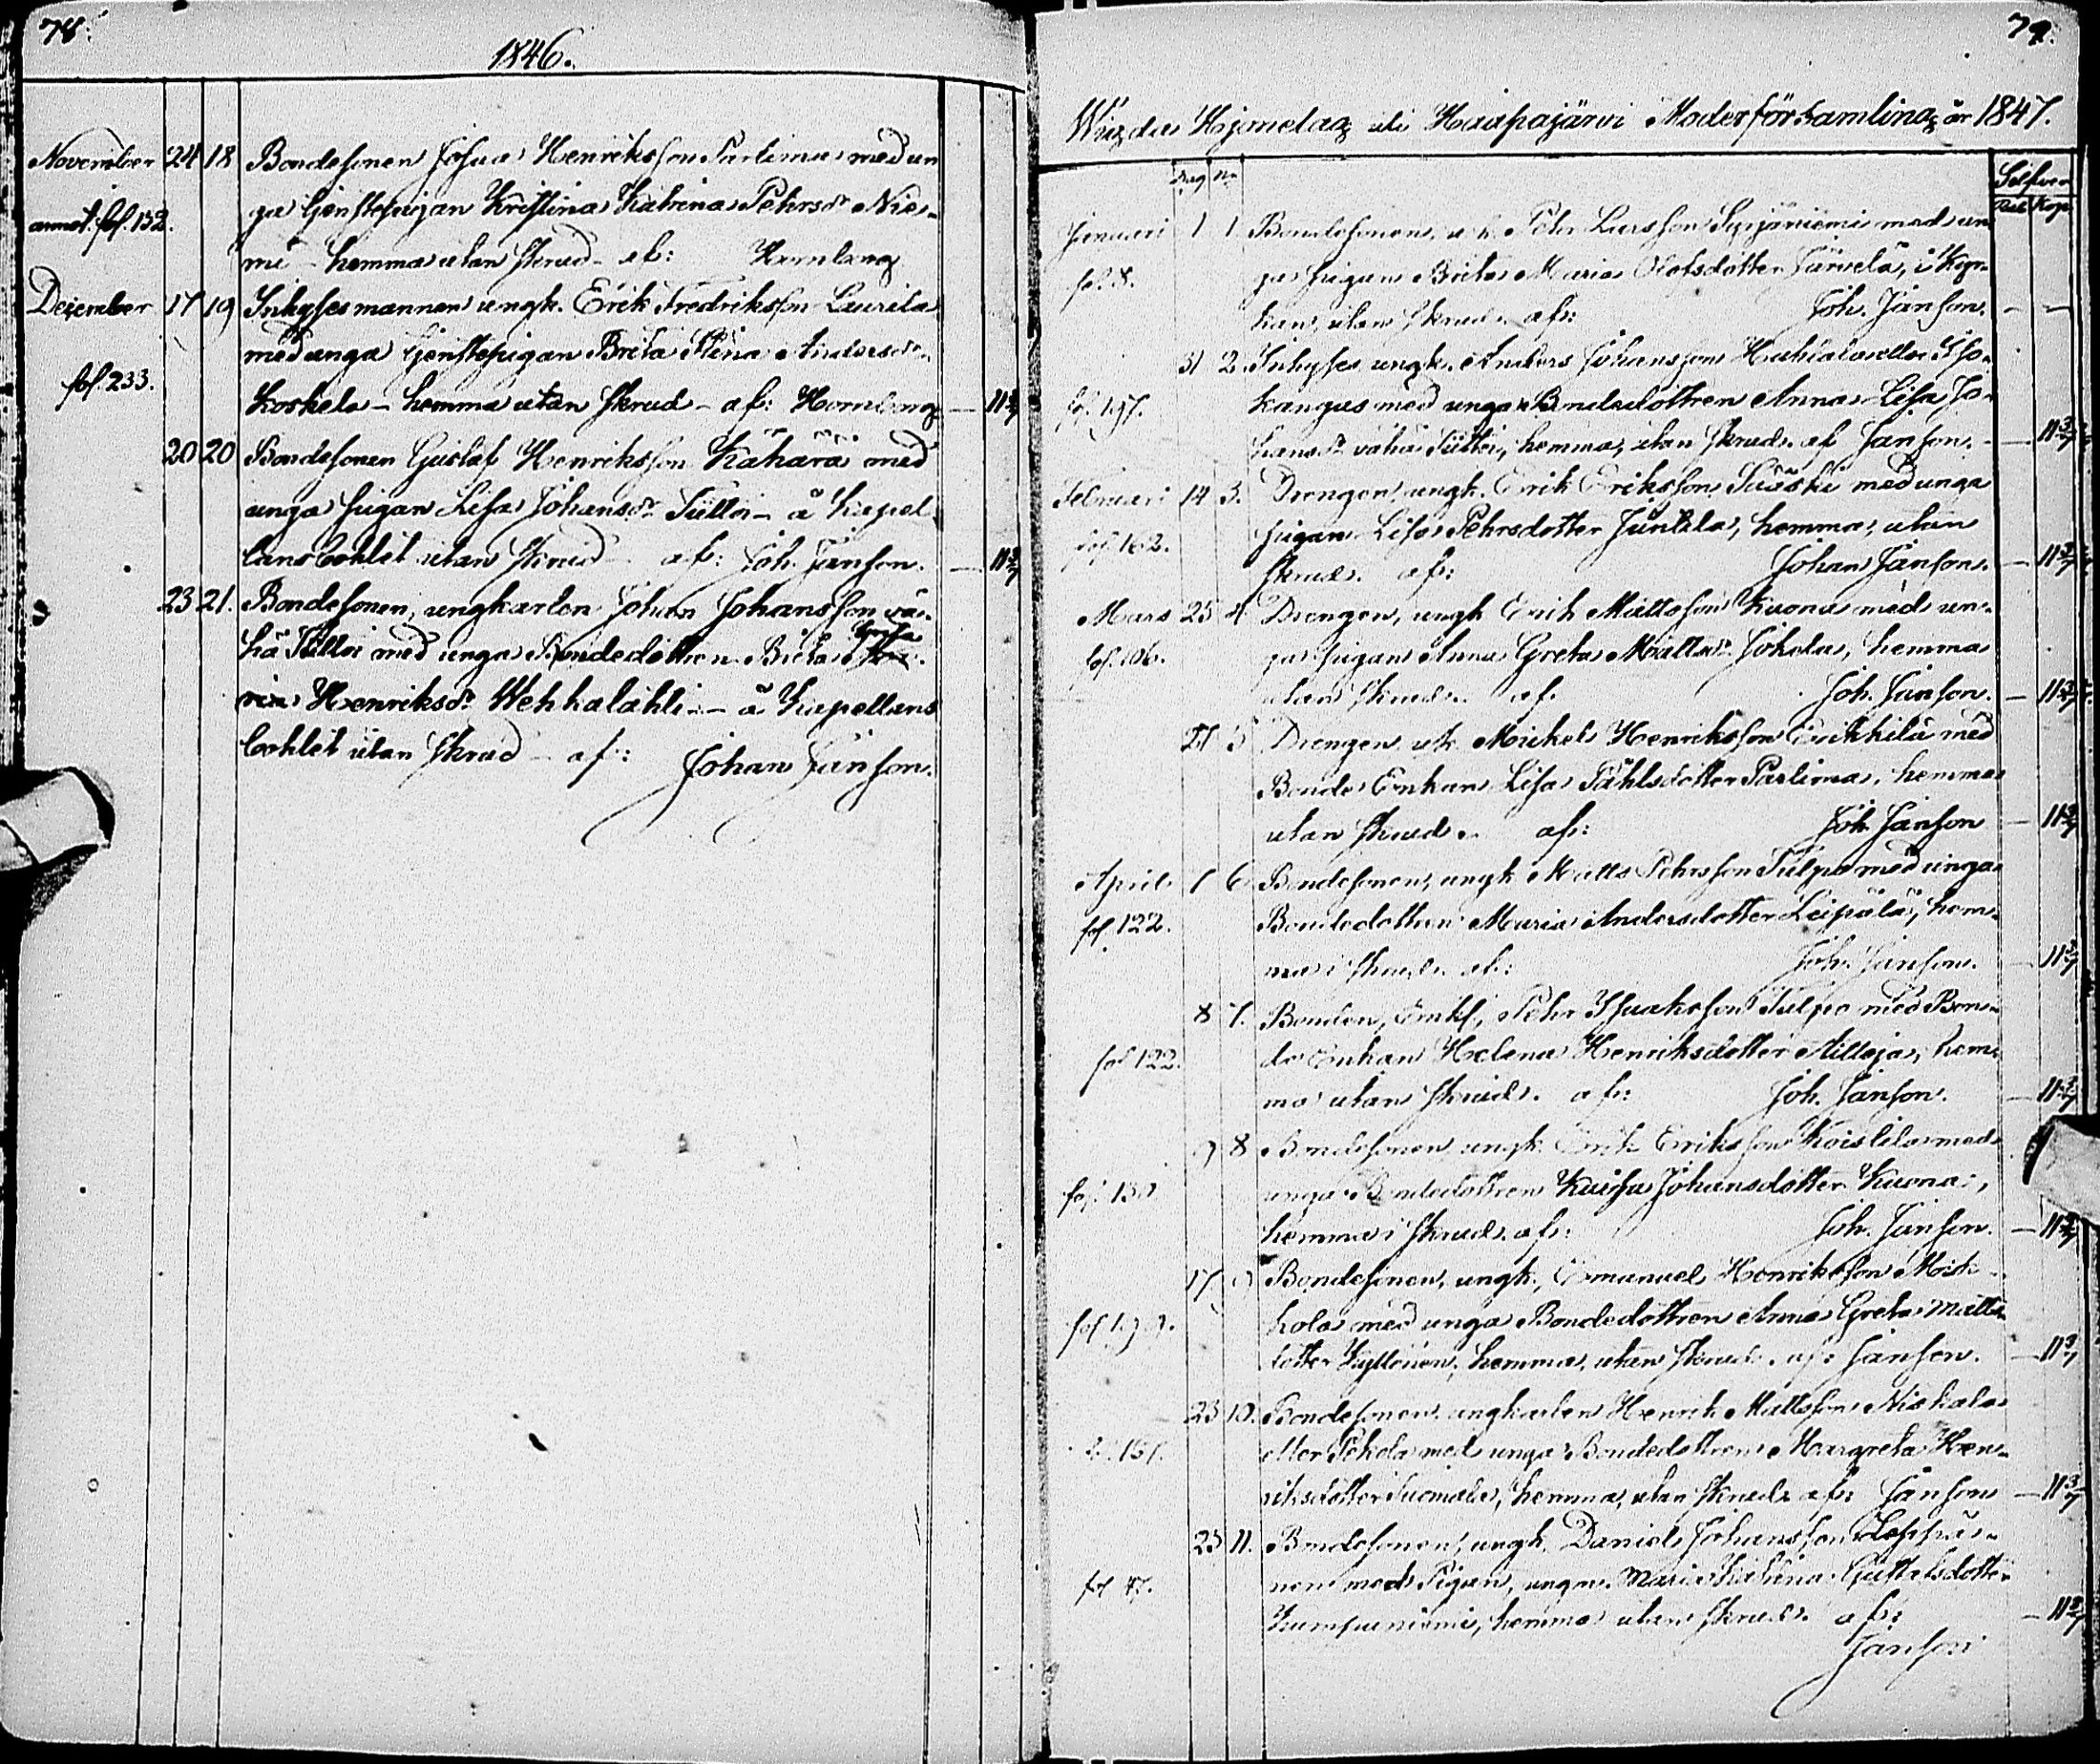 78.
1846.
November 24 18 Bondesonen Josua Henriksson Parlima med un
annot. fol. 152. ga Tjenstepigan Kristina Katrina Pehrsdr Nie-
mi - hemma utan skrud - af: Hornborg
Dezember 17 19 Inhysesmannen ungk. Erik Fredriksson Laurila
med unga Tjenstepigan Brita Stina Andersdr
fol. 233. Koskela - hemma utan skrud - af: Hornborg — 11 3/7
20 20 Bondesonen Gustaf Henriksson Kähärä med
unga pigan Lisa Johansdr Tiittoi - å Kapel-
lansbohlet utan skrud - af: Joh. Janson. — 11 3/7
23 21. Bondesonen, ungkarlen Johan Johansson vä-
hä Tiittoi med unga Bondedottren Brita Greta
Henriksdr Wehkalahti - å Kapellans
bohlet utan skrud - af: Johan Janson.
79.
Wigda Hjonelag uti Haapajärvi Moderförsamling år 1847.
Dag No Silfver
Rub. Kop.
Januari 1 1 Bondesonen, u.k. Pehr Larsson Syrjäniemi med un
fol. 8. ga pigan Brita Maria Olofsdotter Järvelä, i Kyr-
kan, utan skrud. af: Joh. Janson. — —
31 2. Inhyses ungk. Anders Johansson
fol. 197. kangas med unga Bondedottren Anna Lisa Jo-
hansdr vähä Tiittoi, hemma, utan skrud. af Janson. — 11 3/7
Februari 14 3. Drengen, ungk. Erik Eriksson med unga
fol. 162. pigan Lisa Pehrsdotter Junttila, hemma, utan
skrud. af: Johan Janson. — 11 3/7
Mars 25 4 Drengen, ungk Erik Mattsson Kuona med un-
fol. 106. ga pigan Anna Greta Mattsdr Jokela, hemma
utan skrud. af. Joh. Janson. — 11 3/7
27 5 Drengen u.k. Mickel Henriksson Erikkilä med
Bonde Enkan Lisa Påhlsdotter Parlima, hemma
utan skrud. af: Joh. Janson — 11 3/7
April 1 6 Bondesonen, ungk Matts Pehrsson Tulpo med unga
fol. 122. Bondedottren Maria Andersdotter Leipälä, hem-
ma i skrud. af: Joh. Janson. — 11 3/7
8 7. Bonden, Enkl. Pehr Isaaksson Tulpo med Bon-
fol 122. de Enkan Helena Henriksdotter Aittoja, hem-
ma utan skrud. af: Joh. Janson. — 11 3/7
9 8 Bondesonen, ungk. Erik Eriksson Koistila med
fol. 130 unga Bondedottren Kaisa Johansdotter Kuona,
hemma i skrud. af: Joh. Janson. — 11 3/7
17 9 Bondesonen, ungk., Emanuel Henriksson Mick-
fol. 199. kola med unga Bondedottren Anna Greta Matts-
dotter Kyllönen, hemma, utan skrud. af: Janson. — 11 3/7
23 10. Bondesonen, ungkarlen Henrik Mattsson Niskala
fol. 151. eller Pekola med unga Bondedottren Margreta Hen-
riksdotter Tuomala, hemma, utan skrud. af: Janson — 11 3/7
25 11. Bondesonen, ungk. Daniel Johansson Leppä-
fol 47. nen med Pigan, unga Maria Katrina Gustafsdotter
Kumpuniemi, hemma utan skrud. af: — 11 3/7
Janson